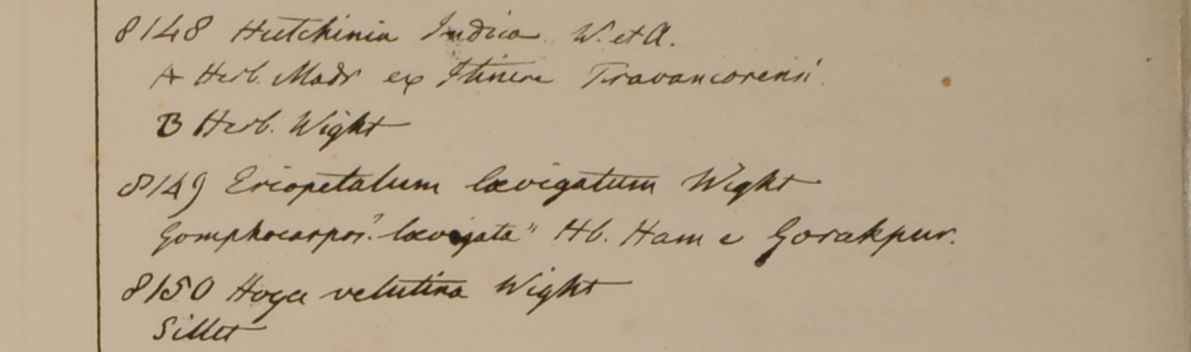 8148 Hutchinia Indica W. et A.
A Herb. Madr ex Itinere Travancorensi.
B Herb. Wight
8149 Eriopetalum lævigatum Wight
Gomphocarpos? lævigata" Hb. Ham e Gorakpur.
8150 Hoya velutina Wight
Sillet